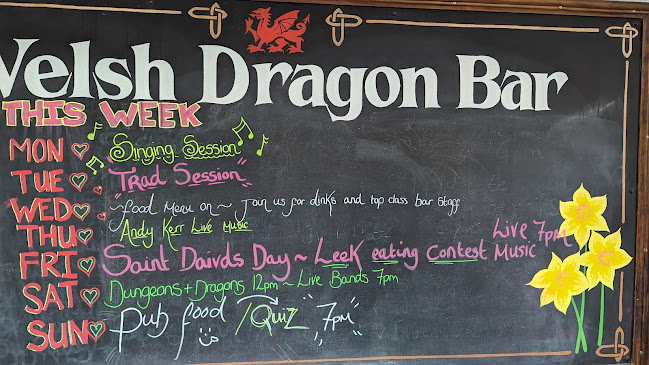 Welsh Dragon Bar
THIS WEEK
MON Singing Session
TUE "Trad Session"
WED ~ food Menu on ~ Join us for drinks and top class bar staff
THU Andy Kerr Live Music
FRI Saint Daivds Day ~ Leek eating Contest Live 7pm Music
SAT Dungeons + Dragons 12pm ~ Live Bands 7pm
SUN Pub food / Quiz "7pm"